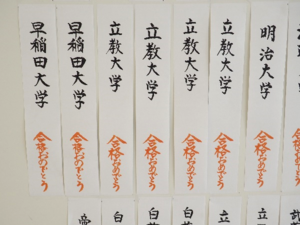 明治大学
合格おめでとう
立教大学
合格おめでとう
立教大学
合格おめでとう
立教大学
合格おめでとう
立教大学
合格おめでとう
早稲田大学
合格おめでとう
早稲田大学
合格おめでとう
立
立
白
白